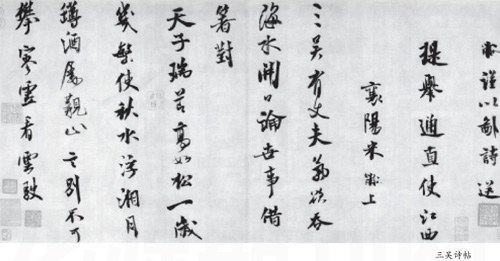 黻謹以鄙詩送
提舉通直使江西
襄陽米黻上
三吳有丈夫氣欲吞
海水開口論世事借
箸對
天子瑞節高如松一歲
幾使秋水浮湘月
罇酒屬言別不可
攀寒靈看雲駛
三吴诗帖